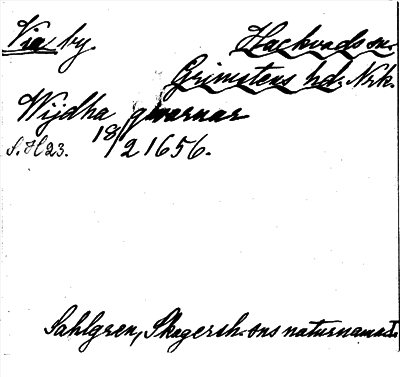 Via by. Hackvads sn.
Grimstens hd, Nrk.
Wijdha qwarnar
S. H 23. 18/2 1656.
Sahlgren, Skagersh-sns naturnamn I.